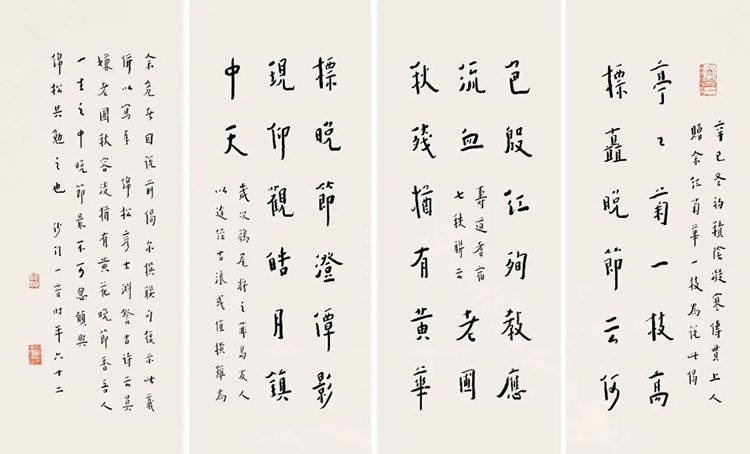 辛巳冬初積陰凝寒傳貫上人
贈余紅菊華一枝為說此偈
亭々菊一枝高
標矗晚節云何
色殷紅殉教應
流血
壽道者宿
七秩聯云
老圃
秋殘猶有黃華
標晚節澄潭影
現仰觀皓月鎮
中天
歲次鶉尾將之友人
以途經古浪或值橫難為
余危者因說前偈尔撰聯句復示此義
併以寫奉 綿松彥士淵詧古詩云莫
嫌老圃秋容淡猶有黃花晚節香吾人
一生之中晚節最不可忽願與
綿松共勉之也 沙門一音時年六十二